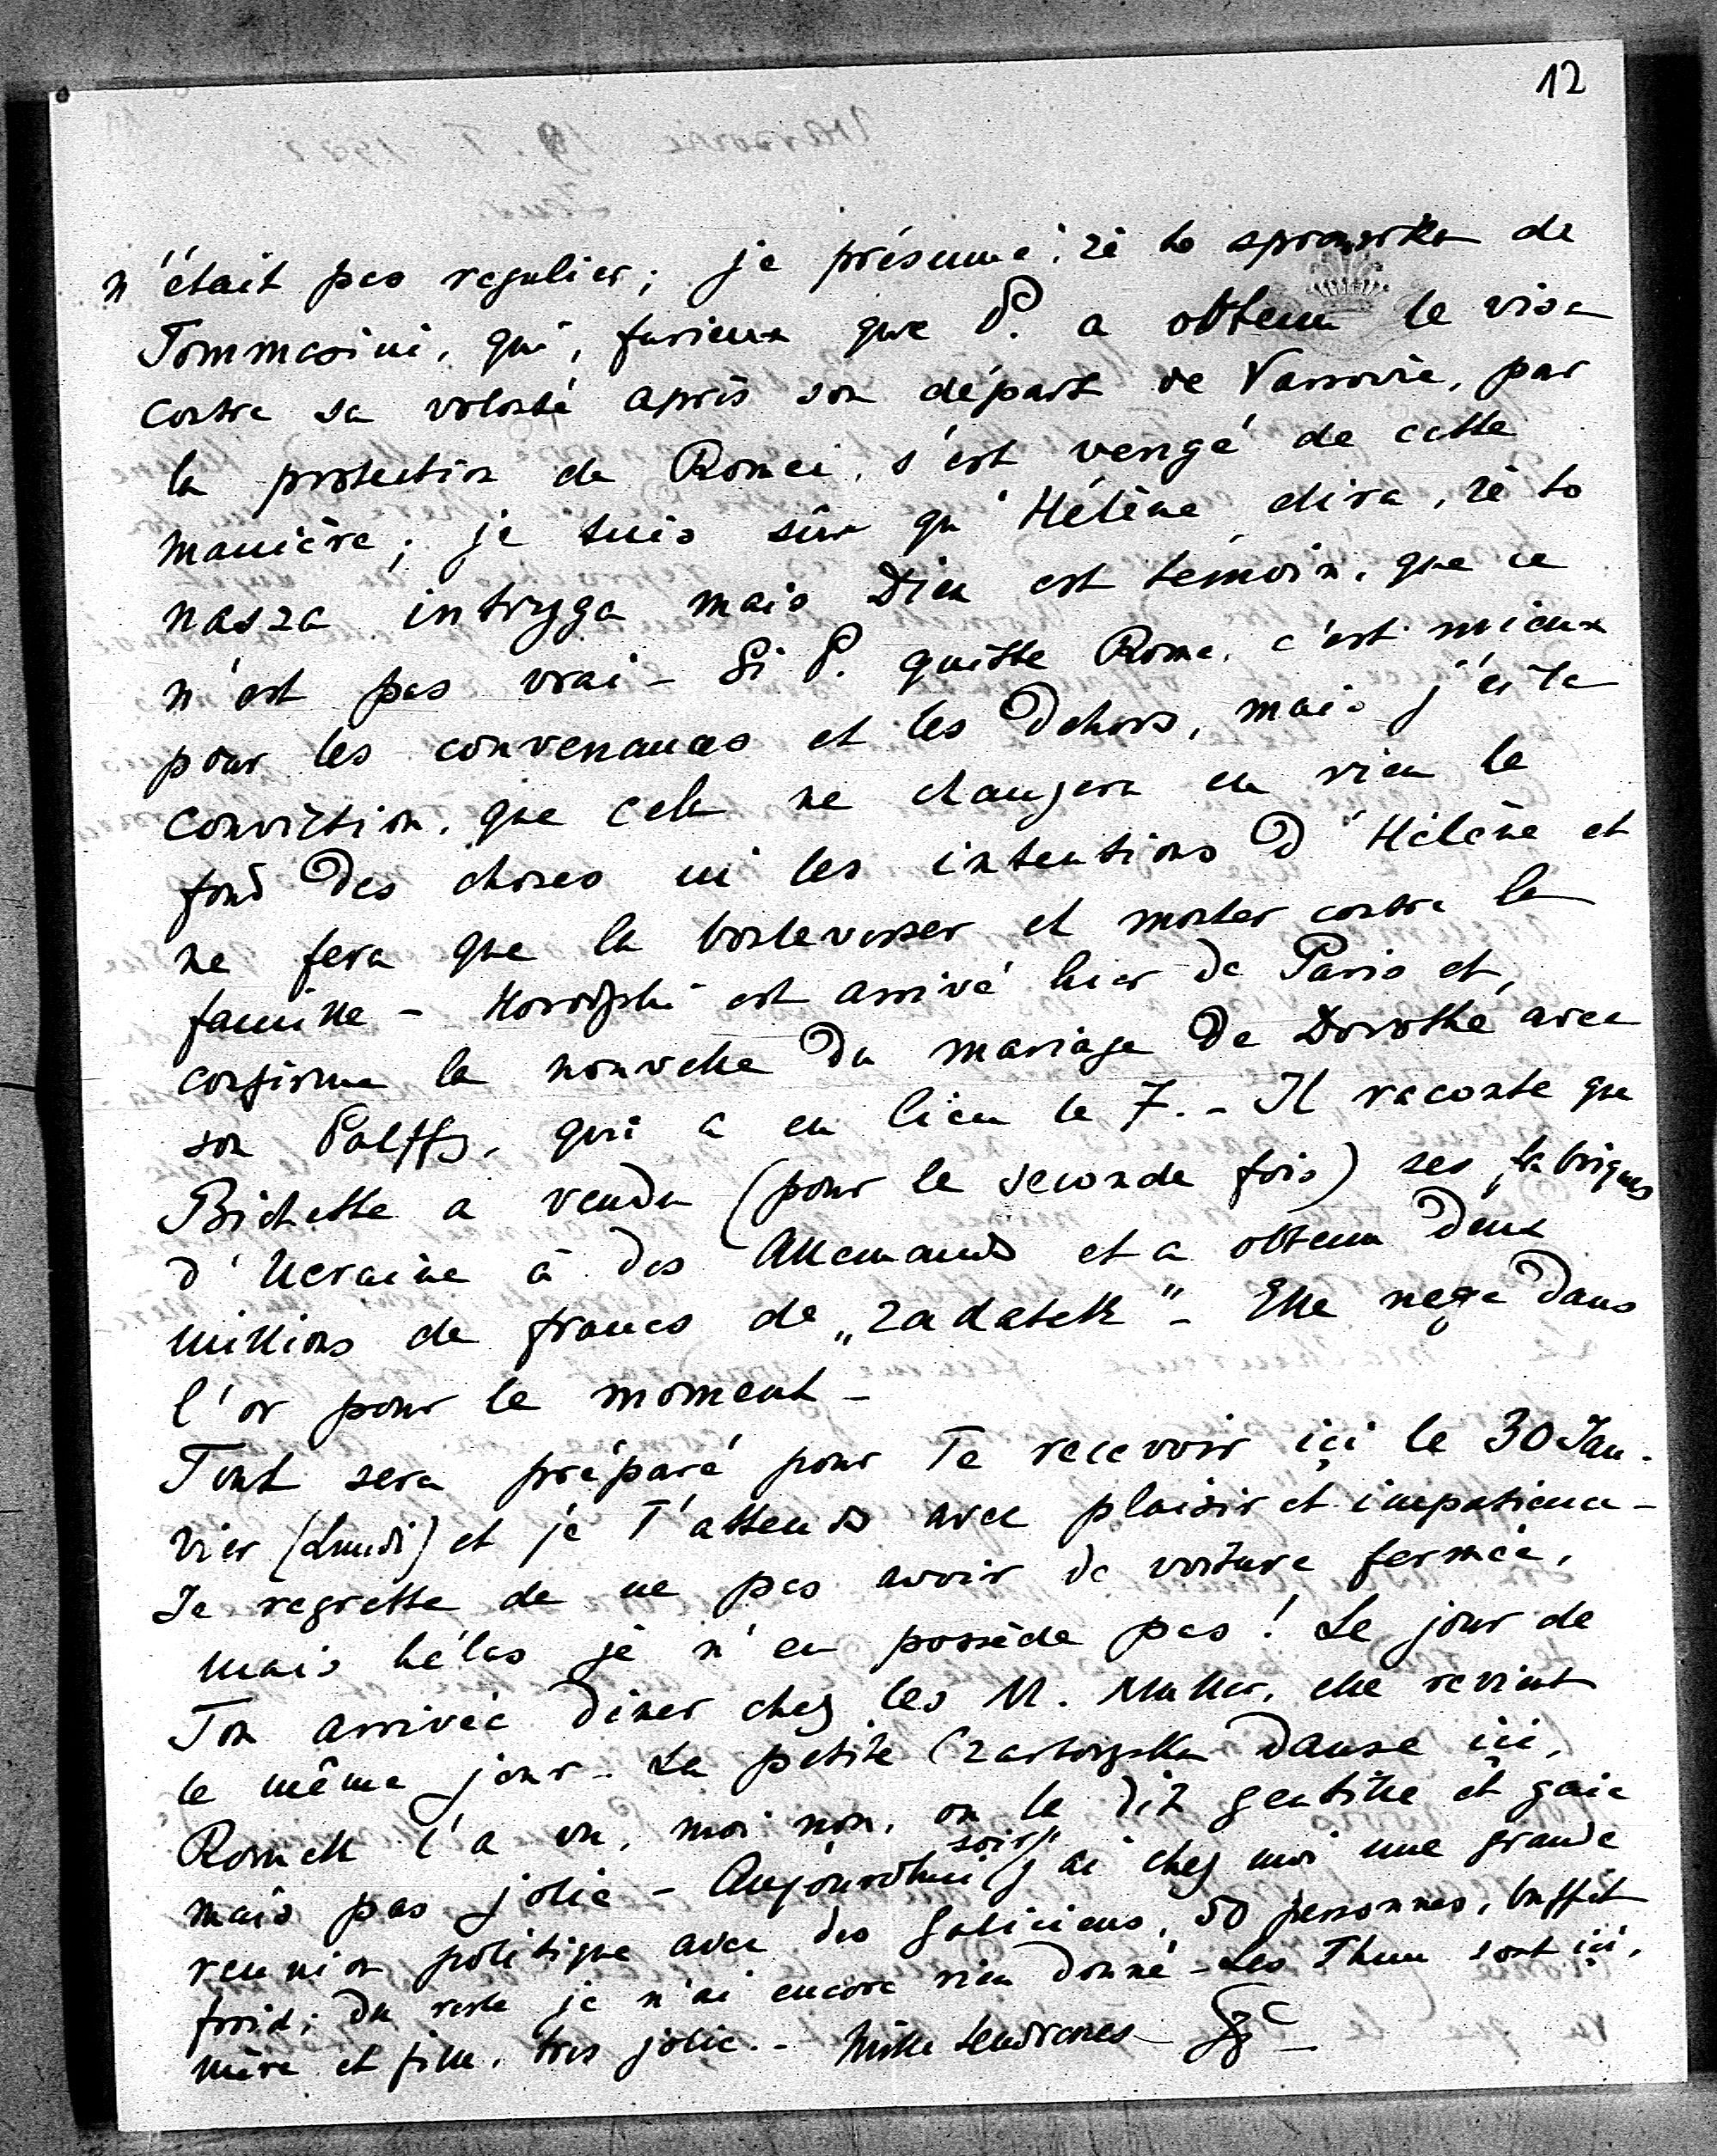 12
n'était pas regulier; je présume, że to sprawka de
Tommasini, qui, furieux que P. a obtenu le visa
contre sa volonté après son départ de Varsovie, par
la protection de Romei, s'est vengé de cette
manière; je suis sûr qu'Hélène dira, że to
nasza intryga mais Dieu est témoin, que ce
n'est pas vrai – Si P. quitte Rome, c'est mieux
pour les convenances et les dehors, mais j'ai la
conviction, que cela ne changera en rien le
fond des choses ni les intentions d'Hélène et
ne fera que la bouleverser et monter contre la
famille – est arrivé hier de Paris et,
confirme la nouvelle du mariage de Dorothé avec
son Palffy, qui a eu lieu le 7. – Il raconte que
Bichette a vendu (pour le seconde fois) ses fabriques
d'Ucraine à des Allemands et a obtenu deux
millions de francs de „zadatek" – Elle nage dans
l'or pour le moment –
Tout sera préparé pour Te recevoir içi le 30 Jan-
vier (Lundi) et je T'attends avec plaisir et impatience –
Je regrette de ne pas avoir de voiture fermée,
mais hélas je n'en possède pas! Le jour de
Ton arrivée diner chez les M. Muller, elle revient
le même jour – La petite Czartoryska danse ici,
Romek l'a vu, moi non, on la dit gentille et gaie
mais pas jolie – Aujourdhui soir j'ai chez moi une grande
reunion politique avec des Galiciens, 50 personnes, buffet
froid; du reste je n'ai encore rien donné – Les Thun sont içi,
mère et fille, très jolie. – Mille tendresses